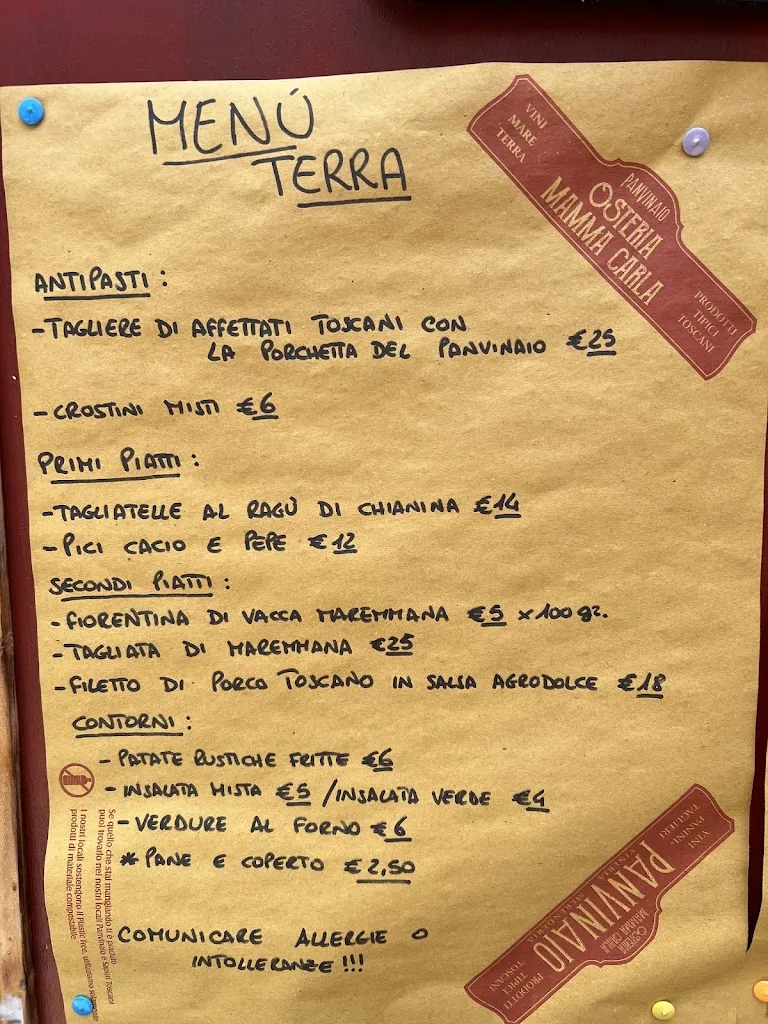 MENÚ
TERRA
VINI
MARE
TERRA
PANVINAIO
OSTERIA
MAMMA CARLA
PRODOTTI
TIPICI
TOSCANI
ANTIPASTI:
-TAGLIERE DI AFFETTATI TOSCANI CON
LA PORCHETTA DEL PANVINAIO €25
-CROSTINI MISTI €6
PRIMI PIATTI:
-TAGLIATELLE AL RAGÙ DI CHIANINA €14
-PICI CACIO E PEPE €12
SECONDI PIATTI:
-FIORENTINA DI VACCA MAREMMANA €5 x100gr.
-TAGLIATA DI MAREMMANA €25
-FILETTO DI PORCO TOSCANO IN SALSA AGRODOLCE €18
CONTORNI:
-PATATE RUSTICHE FRITTE €6
-INSALATA MISTA €5 /INSALATA VERDE €4
-VERDURE AL FORNO €6
*PANE E COPERTO €2,50
COMUNICARE ALLERGIE O
INTOLLERANZE!!!
Se quello che stai mangiando ti è piaciuto
puoi trovarlo nei nostri locali Panvinaio e Sapori Toscani
I nostri locali sostengono il Plastic Free, utilizziamo solamente
prodotti di materiale compostabile
VINI
PANINI
TAGLIERI
PANVINAIO
OSTERIA
MAMMA CARLA
PRODOTTI
TIPICI
TOSCANI